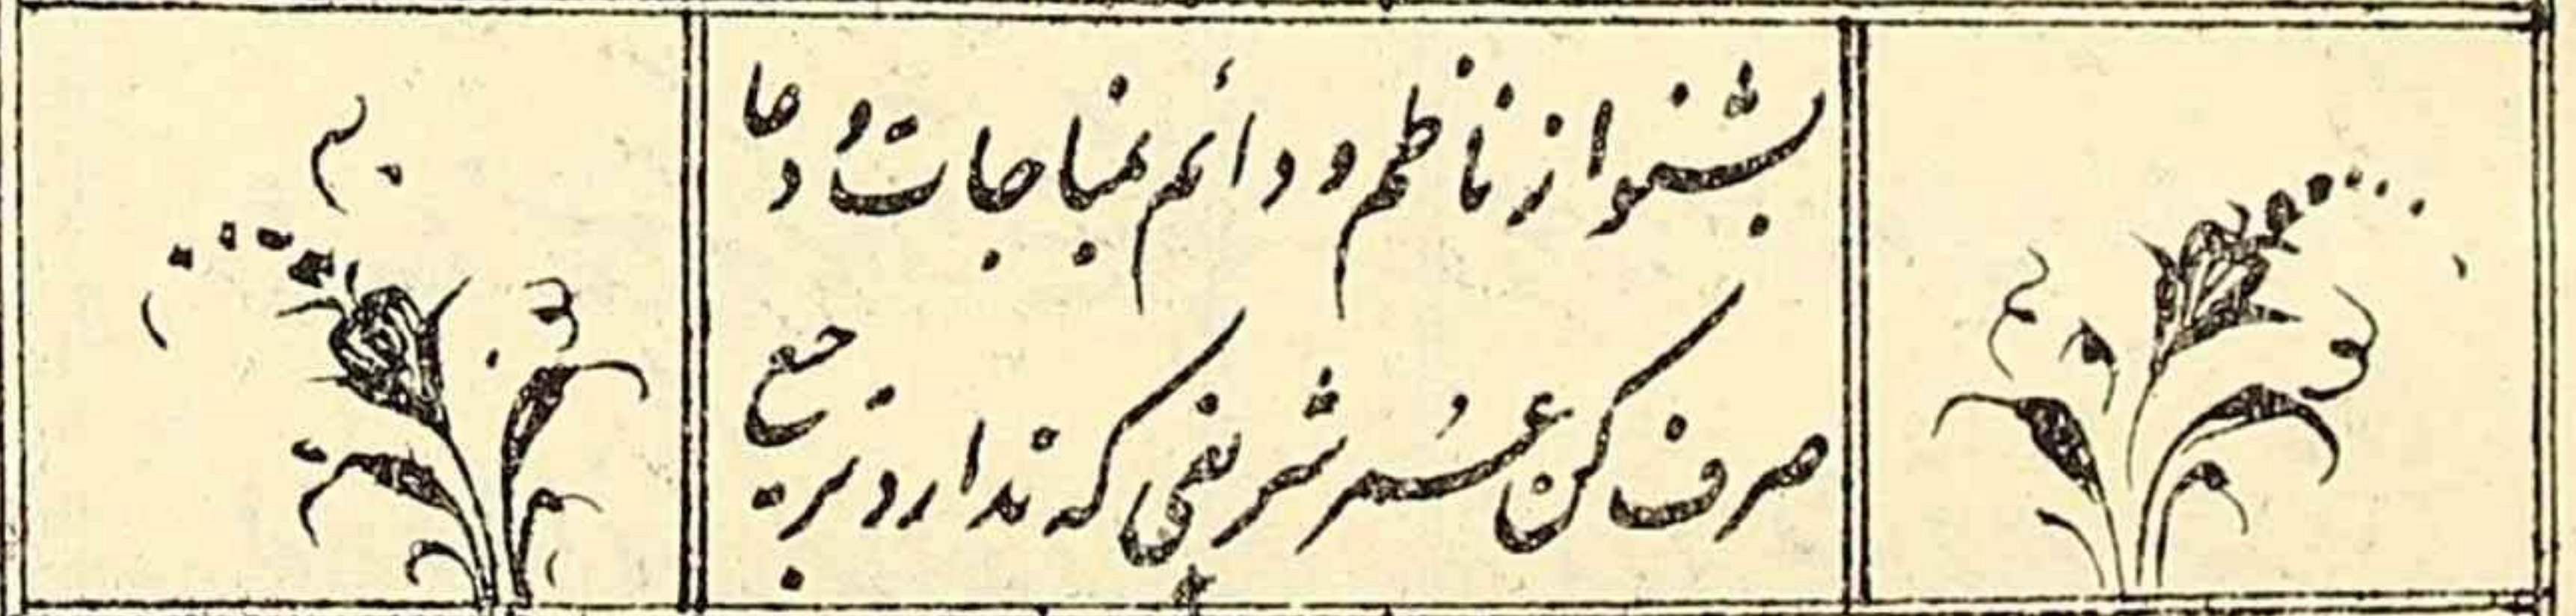 بشنو از ناظم و دائم بمناجات و دعا
صرف کن عمر شریفی که ندارد ترجیع